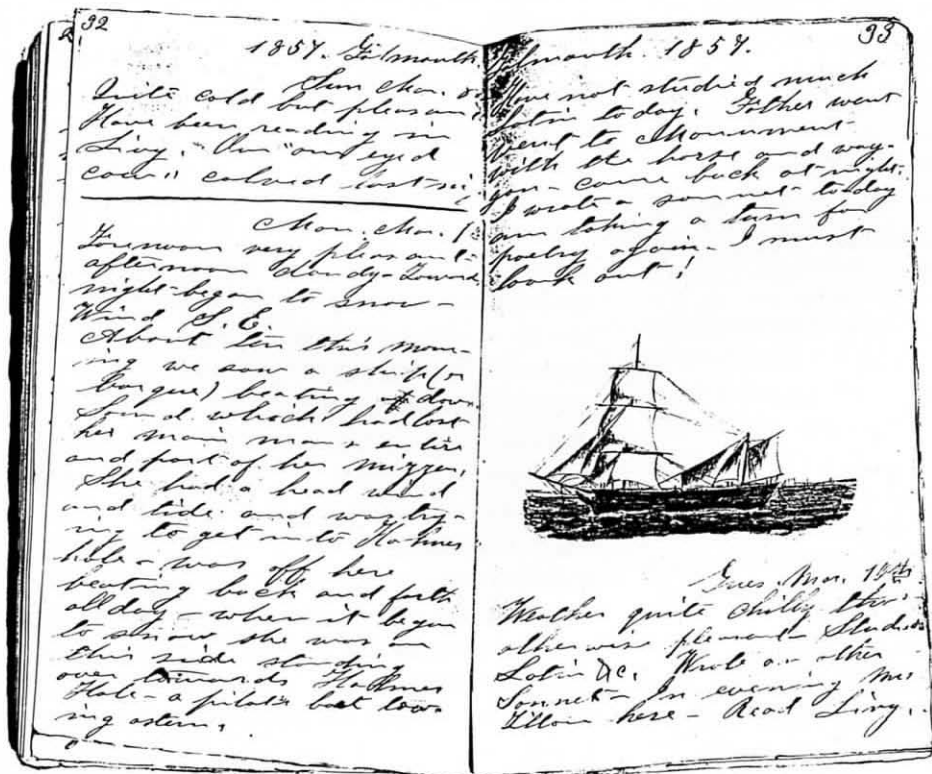 32
1857. Falmouth
Sun Mar. 8
Quite cold but pleasant
Have been reading in
Livy. Our "one eyed
cow" calved last ni
Mon. Mar.
Forenoon very pleasant-
afternoon cloudy-Toward
night-began to snow-
Wind S.E.
About ten this morn-
ing we saw a ship (or
barque) beating down
Sound which had lost
her main mast entire
and part of her mizzen.
She had a head wind
and tide and was try-
ing to get in to Holmes
hole - was off here
beating back and forth
all day - when it began
to snow she was on
this side standing
over towards Holmes
Hole - a pilots boat tow-
ing astern.
33
Falmouth. 1857.
Have not studied much
Latin today. Father went
went to Monument-
with the horse and wag-
gon - came back at night.
I wrote a sonnet-today
am taking a turn for
poetry again - I must
look out!
Tues. Mar. 10th
Weather quite chilly tho'
otherwise pleasant - Studied
Latin &c. Wrote an other
Sonnet - In evening
here - Read Livy.